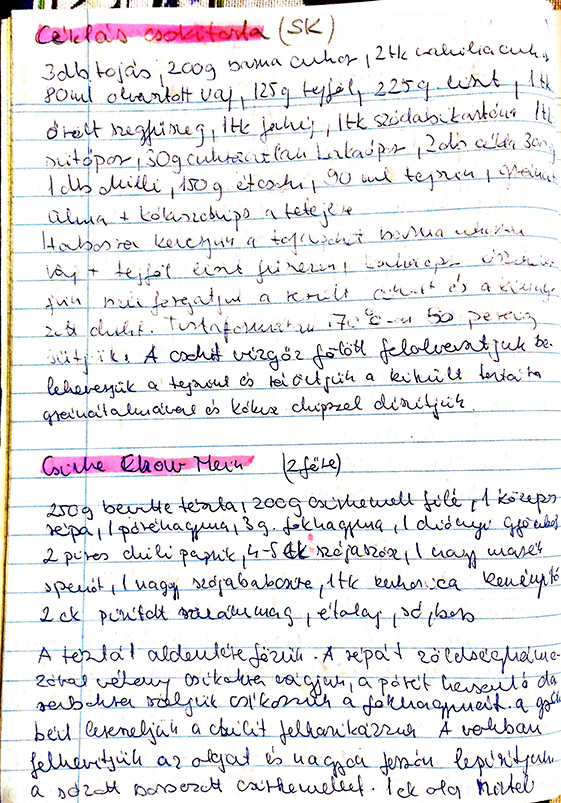 Céklás csokitorta (SK)
3db tojás, 200g barna cukor, 2tk vanília cuk.
80ml olvasztott vaj, 125g tejföl, 225g liszt, 1tk
őrölt szegfűszeg, 1tk fahéj, 1tk szódabikarbóna 1tk
sütőpor, 30g cukrozatlan kakaópor, 2db cékla 300g
1db chilli, 150g étcsoki, 90 ml tejszín, gránát
alma + kókuszchips a tetejére
Habosra keverjük a tojásokat barna
vaj + tejföl liszt fűszerek, kakaópor
a reszelt céklát és a
chilit. Tortaformában 50 percig
sütjük. A csokit vízgőz fölött felolvasztjuk be-
lekeverjük a tejszínt és ráöntjük a kihűlt tortára
gránátalmával és kókusz chipszel díszítjük.
Csirke Chow Mein (2 főre)
250g barna tészta, 200g csirkemell filé, 1 közepes
répa, 1 póréhagyma, 3g. fokhagyma, 1 diónyi gyömbér
2 piros chili paprik, 4-5 ek szójaszósz, 1 nagy marék
spenót, 1 nagy szójababcsíra, 1tk kukorica keményítő
2 ek pirított szezámmag, étolaj, só, bors
A tésztát aldentére főzük. A répát zöldséghámo-
zóval vékony csíkokra vágjuk, a pórét hasonló da-
rabokra szeljük csíkozzuk a fokhagymát a gyöm
bért lereszeljük a chilit felkarikázzuk A wokban
felhevítjük az olajat és nagyon forrón lepirítjuk
a sózott borsozott csirkemellet. 1 ek olaj